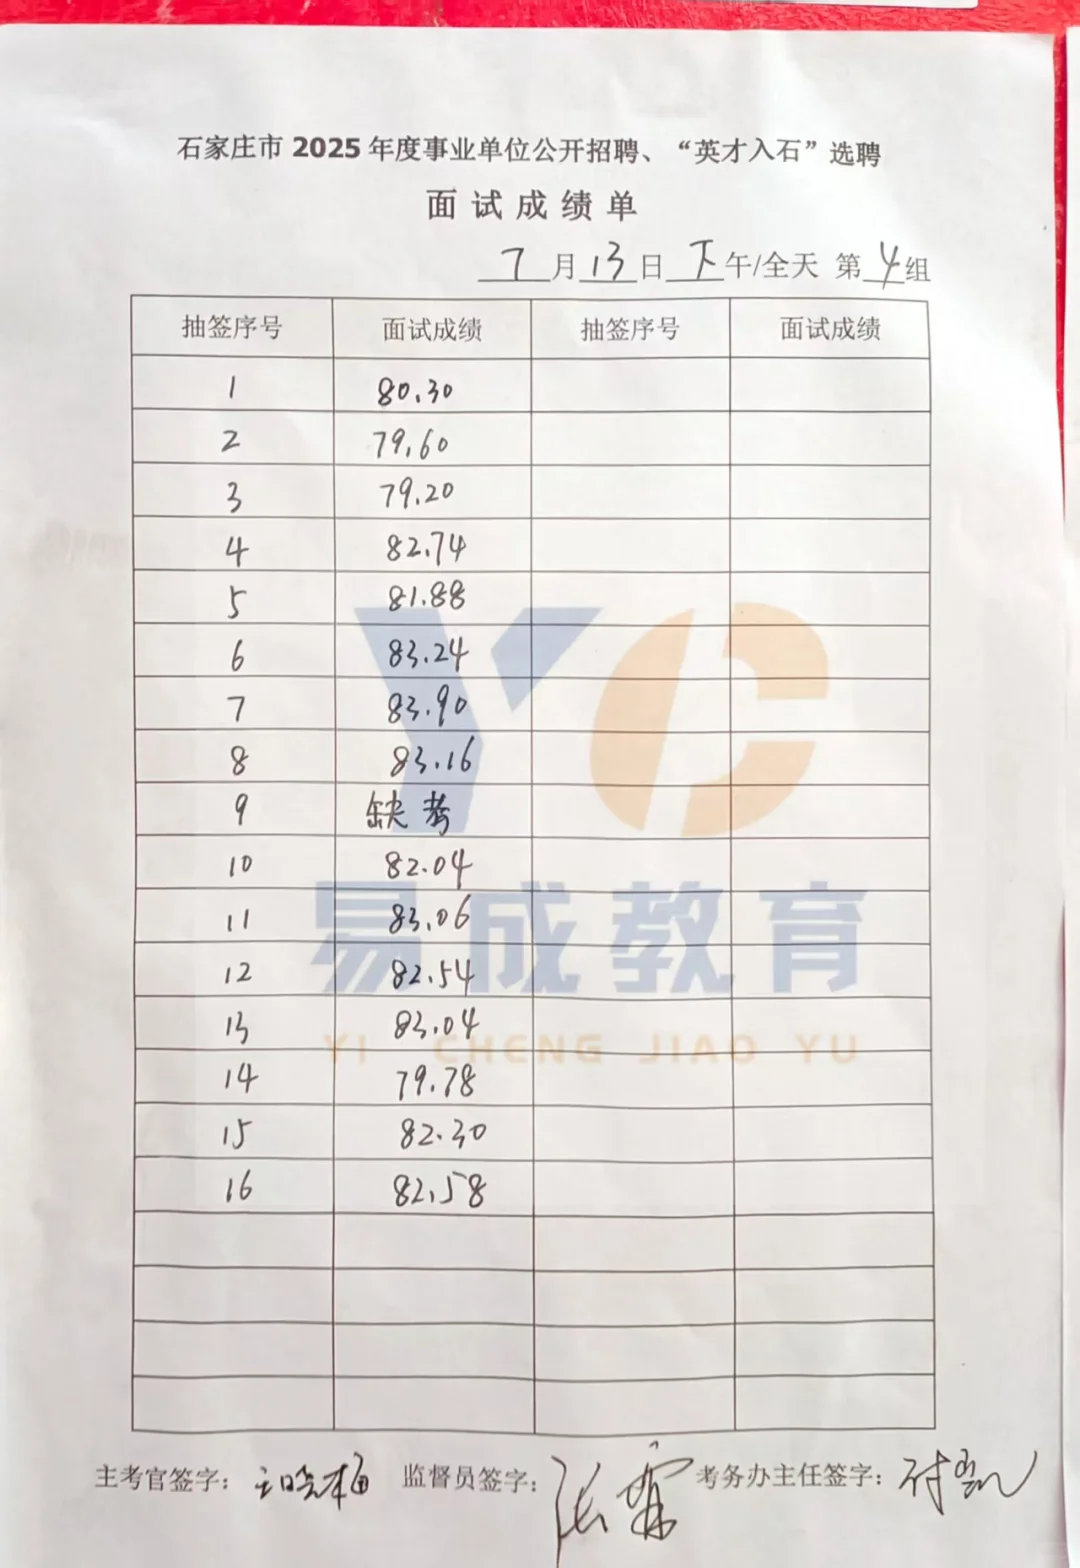 石家庄市 2025 年度事业单位公开招聘、“英才入石”选聘
面试成绩单
7月13日下午/全天 第4组
抽签序号 面试成绩 抽签序号 面试成绩
1 80.30
2 79.60
3 79.20
4 82.74
5 81.88
6 83.24
7 83.90
8 83.16
9 缺考
10 82.04
11 83.06
12 82.54
13 83.04
14 79.78
15 82.30
16 82.58
YC
易成教育
YI CHENG JIAO YU
主考官签字： 监督员签字： 考务办主任签字：